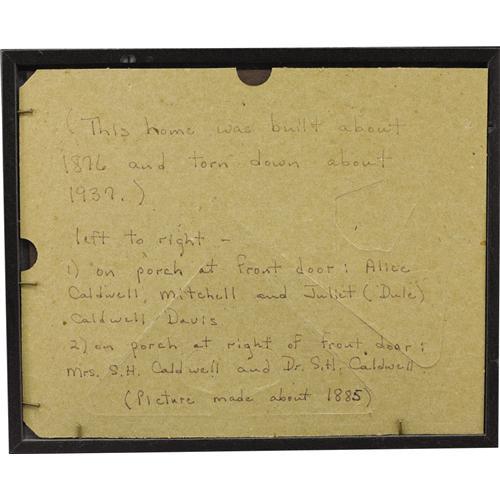 (This home was built about
1876 and torn down about
1937.)
left to right -
1) on porch at front door: Alice
Caldwell, Mitchell and Juliet ("Dule")
Caldwell Davis
2) on porch at right of front door:
Mrs. S.H. Caldwell and Dr. S.H. Caldwell.
(Picture made about 1885)